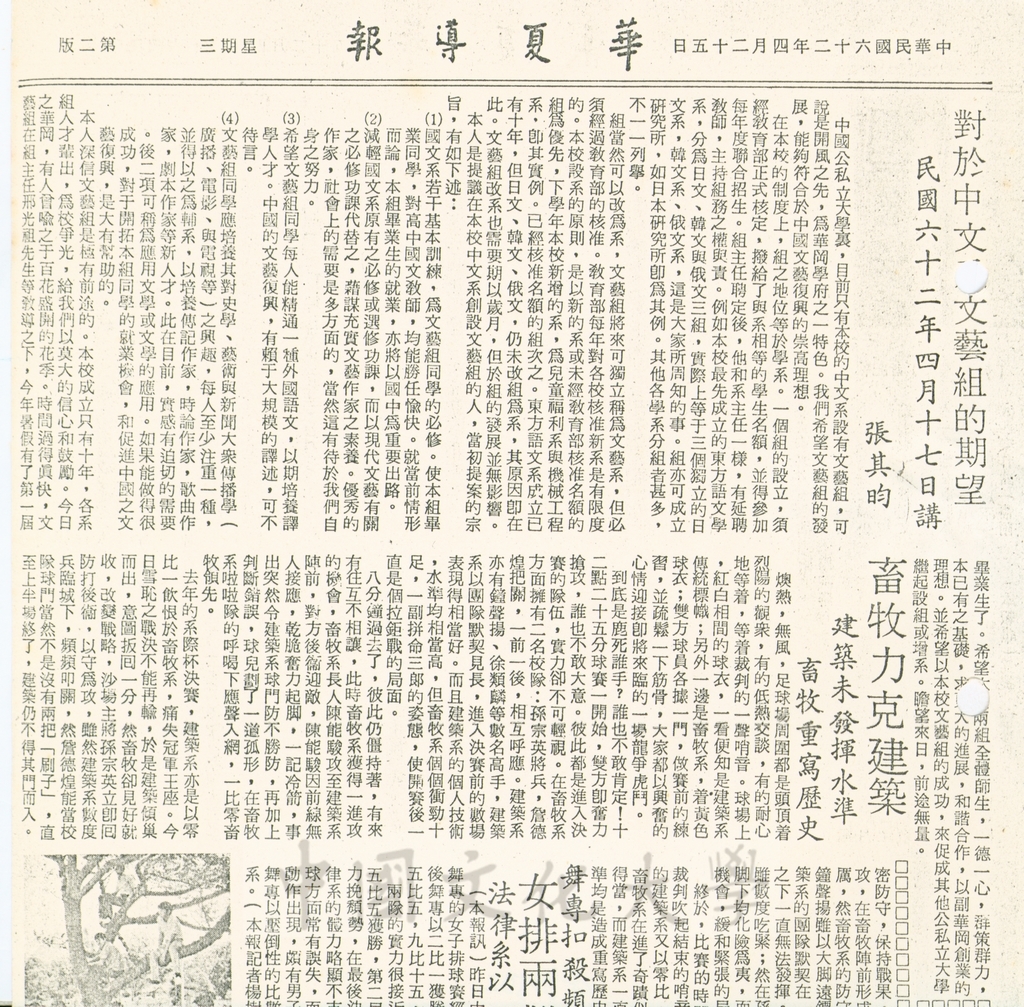 中華民國六十二年四月二十五日
華夏導報
星期三
第二版
對於中文 文藝組的期望
民國六十二年四月十七日講
張其昀
中國公私立大學裏，目前只有本校的中文系設有文藝組，可
說是開風之先，為華岡學府之一特色。我們希望文藝組的發
展，能夠符合於中國文藝復興的崇高理想。
在本校的制度上，組之地位等於學系。一個組的設立，須
經教育部正式核定，撥給了與系相等的學生名額，並得參加
每年度聯合招生。組主任聘定後，他和系主任一樣，有延聘
教師，主持組務之權與責。例如本校最先成立的東方語文學
系，分為日文、韓文與俄文三組，實際上等于三個獨立的日
文系，韓文系、俄文系，這是大家所周知的事。組亦可成立
研究所，如日本研究所卽為其例。其他各學系分組者甚多，
不一一列舉。
組當然可以改為系，文藝組將來可獨立稱為文藝系，但必
須經過教育部的核准。教育部每年對各校核准新系是有限度
的。本校設系的原則，是以新的系或未經教育部核准名額的
組為優先，下學年本校新增的系，為兒童福利系與機械工程
系，卽其實例。已經核准名額的組次之。東方語文系成立已
有十年，但日文、韓文、俄文，仍未改組為系，其原因卽在
此。文藝組改系也需要期以歲月，但於組的發展並無影響。
本人是提議在本校中文系創設文藝組的人，當初提案的宗
旨，有如下述：
⑴國文系若干基本訓練，為文藝組同學的必修。使本組畢
業同學，對高中國文教師，均能勝任愉快。就當前情形
而論，本組畢業生的就業，亦將以國中為重要出路。
⑵減輕國文系原有之必修或選修功課，而以現代文藝有關
之必修功課代替之，藉謀充實文藝作家之素養。優秀的
作家，社會上的需要是多方面的，當然這有待於我們自
身之努力。
⑶希望文藝組同學每人能精通一種外國語文，以期培養譯
學人才。中國的文藝復興，有賴于大規模的譯述，可不
待言。
⑷文藝組同學應培養其對史學、藝術與新聞大衆傳播學（
廣播、電影、與電視等）之興趣，每人至少注重一種，
並得以之為輔系，以培養傳記作家，時論作家，歌曲作
家，劇本作家等新人才。此在目前，實感有迫切的需要
。後二項可稱為應用文學或文學的應用。如果能做得很
成功，對于開拓本組同學的就業機會，和促進中國之文
藝復興，是大有幫助的。
本人深信文藝組是極有前途的。本校成立只有十年，各系
組人才輩出，為校爭光，給我們以莫大的信心和鼓勵。今日
之華岡，有人喻之于百花盛開的花季。時間過得眞快，文
藝組在組主任邢光祖先生等教導之下，今年暑假有了第一屆
畢業生了。希望 兩組全體師生，一德一心，群策群力，
本已有之基礎，求 大的進展，和諧合作，以副華岡創業的
理想。並希望以本校文藝組的成功，來促成其他公私立大學
繼起設組或增系。瞻望來日，前途無量。
畜牧力克建築
建築未發揮水準
畜牧重寫歷史
燠熱，無風，足球場周圍都是頭頂着
烈陽的觀衆，有的低熱交談，有的耐心
地等着，等着裁判的一聲哨音。球場上
，紅白相間的球衣，一看便知是建築系
傳統標幟；另外一邊是畜牧系，着黃色
球衣；雙方球員各據一門，做賽前的練
習，並疏鬆一下筋骨，大家都以興奮的
心情迎接卽將來臨的一場龍爭虎鬥。
到底是鹿死誰手？誰也不敢肯定！十
二點二十五分球賽一開始，雙方卽奮力
搶攻，誰也不敢大意。彼此都是進入決
賽的隊伍，實力卻不可輕視。在畜牧系
方面擁有二名校隊：孫宗英將兵，詹德
煌把關，一前一後，相互呼應。建築系
亦有鐘聲揚、徐類麟等數名高手，建築
系以團隊默契見長，進入決賽前的數場
表現得相當好。而且建築系的個人技術
，水準均相當高，但畜牧系個個衝勁十
足，一副拼命三郎的姿態，使開賽後一
直是個拉鉅戰的局面。
八分鐘過去了，彼此仍僵持著，有來
有往互不相讓，此時畜牧系獲得一進攻
的機會，畜牧系長人陳能駿攻至建築系
陣前，對方後衛迎敵，陳能駿因前線無
人接應，乾脆奮力起脚，一記冷箭，事
出突然令建築系球門防不勝防，再加上
判斷錯誤，球兒劃了一道弧形，在畜牧
系啦啦隊的呼喝下應聲入網，一比零畜
牧領先。
去年的系際杯決賽，建築系亦是以零
比一飲恨於畜牧系，痛失冠軍王座。今
日雪恥之戰決不能再輸，於是建築傾巢
而出，意圖扳回一分，然畜牧卻見好就
收，改變戰略，沙場主將孫宗英立卽回
防打後衛，以守為攻，雖然建築系數度
兵臨城下，頻頻叩關，然詹德煌能當校
隊球門當然不是沒有兩把「刷子」，直
至上半場終了，建築仍不得其門而入。
密防守，保持戰果
攻，在畜牧陣前形成
厲，然畜牧系的防守
鐘聲揚雖以大脚遠
築系的團隊默契在
之下一直無法發揮
雖數度吃緊；然在孫
脚下均化險為夷，而
機會，緩和緊張的局
終於，比賽的時
裁判吹起結束的哨音
的建築系又以零比
畜牧系在進了奇蹟似
得當，而建築系一直
準均是造成重寫歷史
舞專扣殺頻
女排兩
法律系以
（本報訊）昨日中
舞專的女子排球賽經
後舞專以二比一獲勝
五比九，九比十五，
兩隊的實力很接近
五比五獲勝，第二
力挽頹勢，在最後決
律系的體力略顯不支
球方面常有誤失，而
動作出現，頗有男子
舞專以壓倒性的比數
系。（本報記者楊
中國文化大學